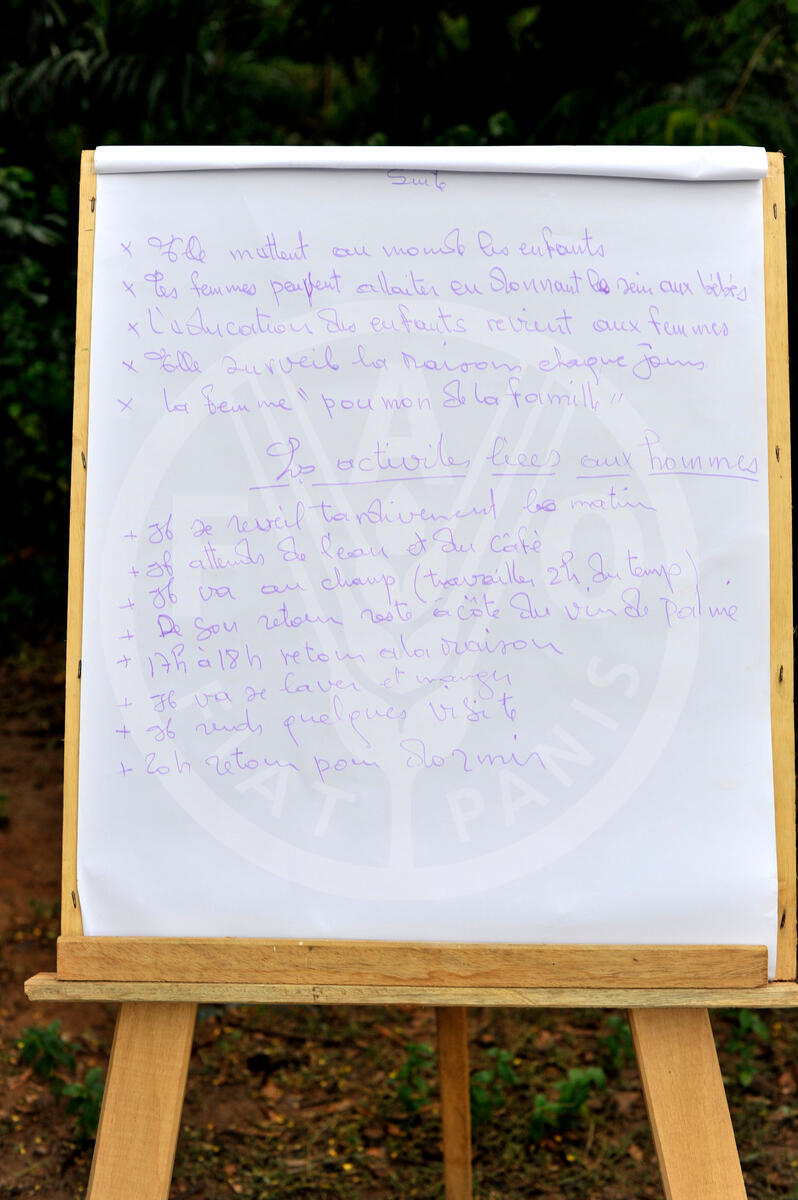 Suite
× Elle mettent au monde les enfants
× Les femmes peuvent allaiter en donnant le sein aux bébés
× L'education des enfants revient aux femmes
× Elle surveil la maison chaque jours
× La femme "poumon de la famille"
Les activites liees aux hommes
+ Il se reveil tardivement le matin
+ Il attends de l'eau et du câfé
+ Il va au champ (travailler 2h du temp)
+ De son retour reste à côte du vin de palme
+ 17h à 18h retour a la maison
+ Il va se laver et manger
+ Il rends quelques visite
+ 20h retour pour dormir
FAO
FIAT PANIS